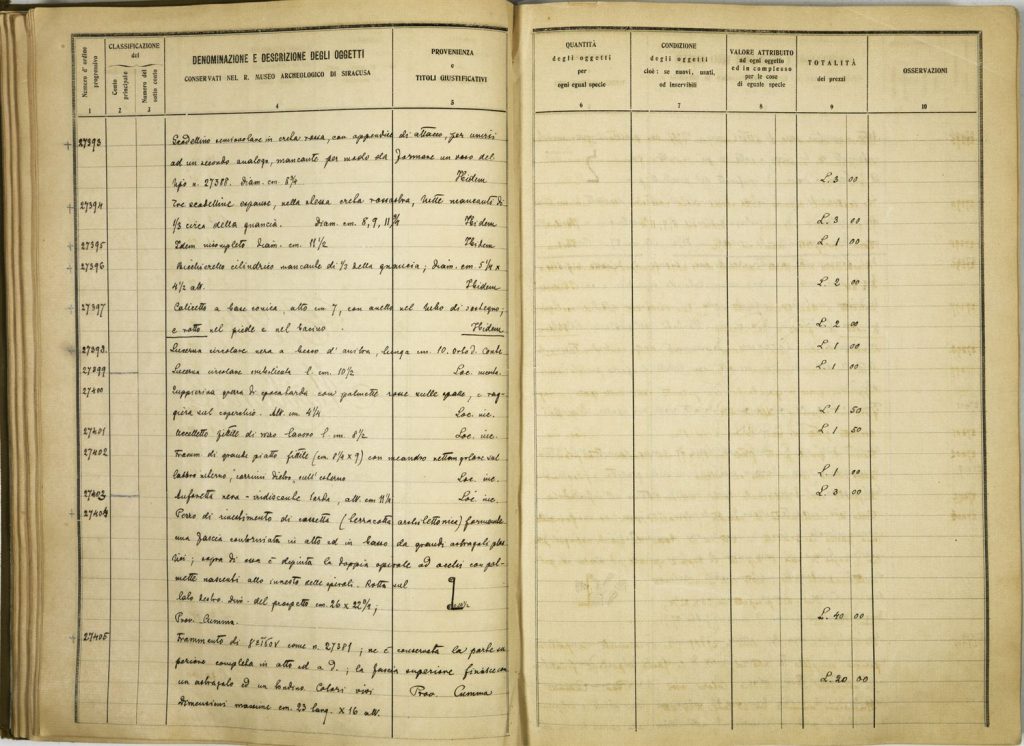 Numero d'ordine progressivo
CLASSIFICAZIONE del
Conto principale
Numero del sotto conto
DENOMINAZIONE E DESCRIZIONE DEGLI OGGETTI
CONSERVATI NEL R. MUSEO ARCHEOLOGICO DI SIRACUSA
PROVENIENZA
e
TITOLI GIUSTIFICATIVI
1 2 3 4 5
27393 Scodellino semiovolare in creta rossa, con appendice di attacco, per unirsi
ad un secondo analogo, mancante per modo da formare un vaso del
tipo n. 27388. Diam. cm 8¾ Ibidem
27394 Tre scodelline espanse, nella stessa creta rossastra, tutte mancanti di
⅓ circa della guancia. Diam. cm. 8, 9, 11¾ Ibidem
27395 Idem incompleto Diam. cm. 11½ Ibidem
27396 Bicchieretto cilindrico mancante di ⅓ della guancia; Diam. cm 5¼ x
4½ alt. Ibidem
27397 Calicetto a base conica, alto cm 7, con anello nel tubo di sostegno;
è rotto nel piede e nel bacino. Ibidem
27398 Lucerna circolare nera a becco d'anitra, lunga cm. 10. Orto d. Conte
27399 Lucerna circolare l. cm. 10½ Loc. incerta
27400 con palmette rosse sulle spalle, e rag-
giera sul coperchio. Alt. cm. 4¼ Loc. inc.
27401 Uccelletto fittile di lavoro l. cm. 8½ Loc. inc.
27402 Framm. di grande piatto fittile (cm. 8¼ x 9) con meandro rettangolare sul
labbro interno, dietro, sull'esterno Loc. inc.
27403 Anforetta nera-iridiscente tarda, alt. cm 11½ Loc. inc.
27404 Pezzo di rivestimento di cassetta (terracotta architettonica) formante
una fascia contorniata in alto ed in basso da grandi astragali plas
tici; sopra di essa è dipinta la doppia spirale ad occhi con pal-
mette nascenti allo innesto delle spirali. Rotta sul
lato destro. Dim. del prospetto cm. 26 x 22½;
Prov. Cumma.
27405 Frammento di γεῖσον come n. 27381; ne è conservata la parte su
periore completa in alto ed a d.; la fascia superiore finisce con
un astragalo ed un tondino. Colori vivi Prov. Cumma
Dimensioni massime cm. 23 lung. x 16 alt.
QUANTITÀ
degli oggetti
per
ogni egual specie
CONDIZIONE
degli oggetti
cioè: se nuovi, usati,
od inservibili
VALORE ATTRIBUITO
ad ogni oggetto
ed in complesso
per le cose
di eguale specie
TOTALITÀ
dei prezzi
OSSERVAZIONI
6 7 8 9 10
L. 3 00
L. 3 00
L. 1 00
L. 2 00
L. 2 00
L. 1 00
L. 1 00
L. 1 50
L. 1 50
L. 1 00
L. 3 00
L. 40 00
L. 20 00